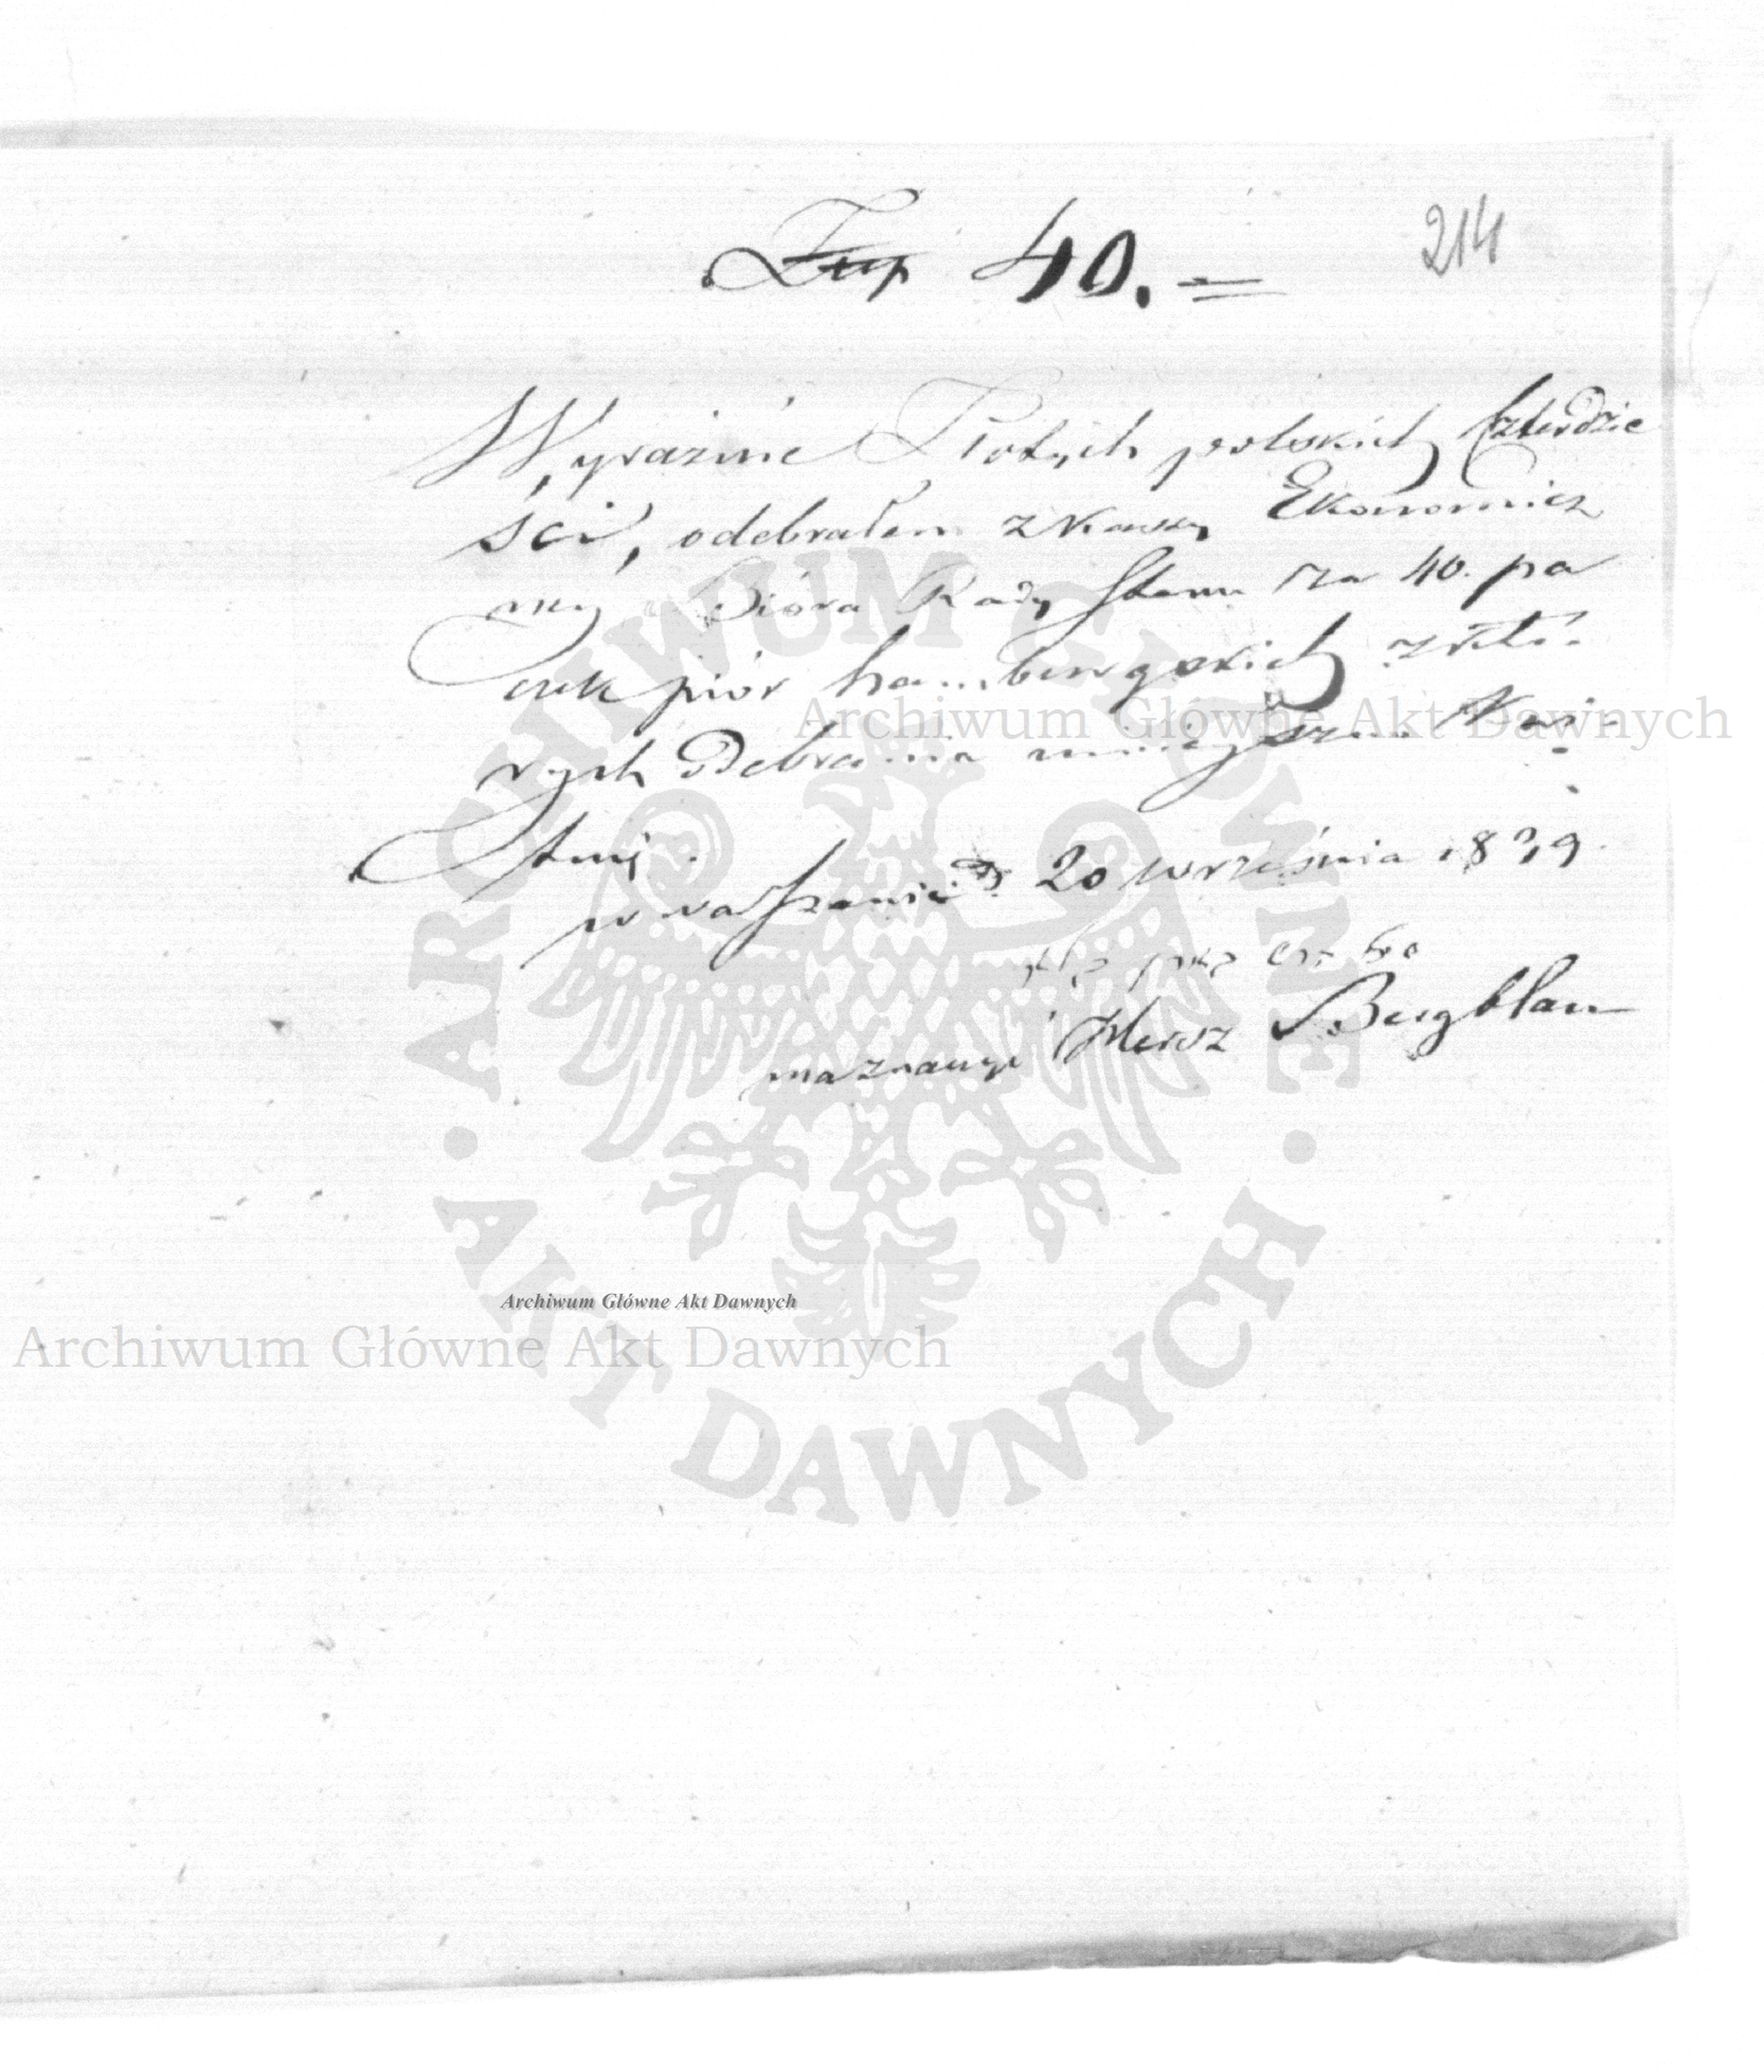 214
Złp 40. =
Wyraźnie Złotych polskich Czterdzie
ści, odebrałem z Kassy Ekonomicz
ney Bióra Rady Stanu za 40. pa
czek piór hamburgskich z któ-
rych Odebrania ninieyszem Kwi-
tuię.
w Warszawie d. 20 września 1839.
Hersz Bergblau
ARCHIWUM GŁÓWNE
AKT DAWNYCH
Archiwum Główne Akt Dawnych
Archiwum Główne Akt Dawnych
Archiwum Główne Akt Dawnych